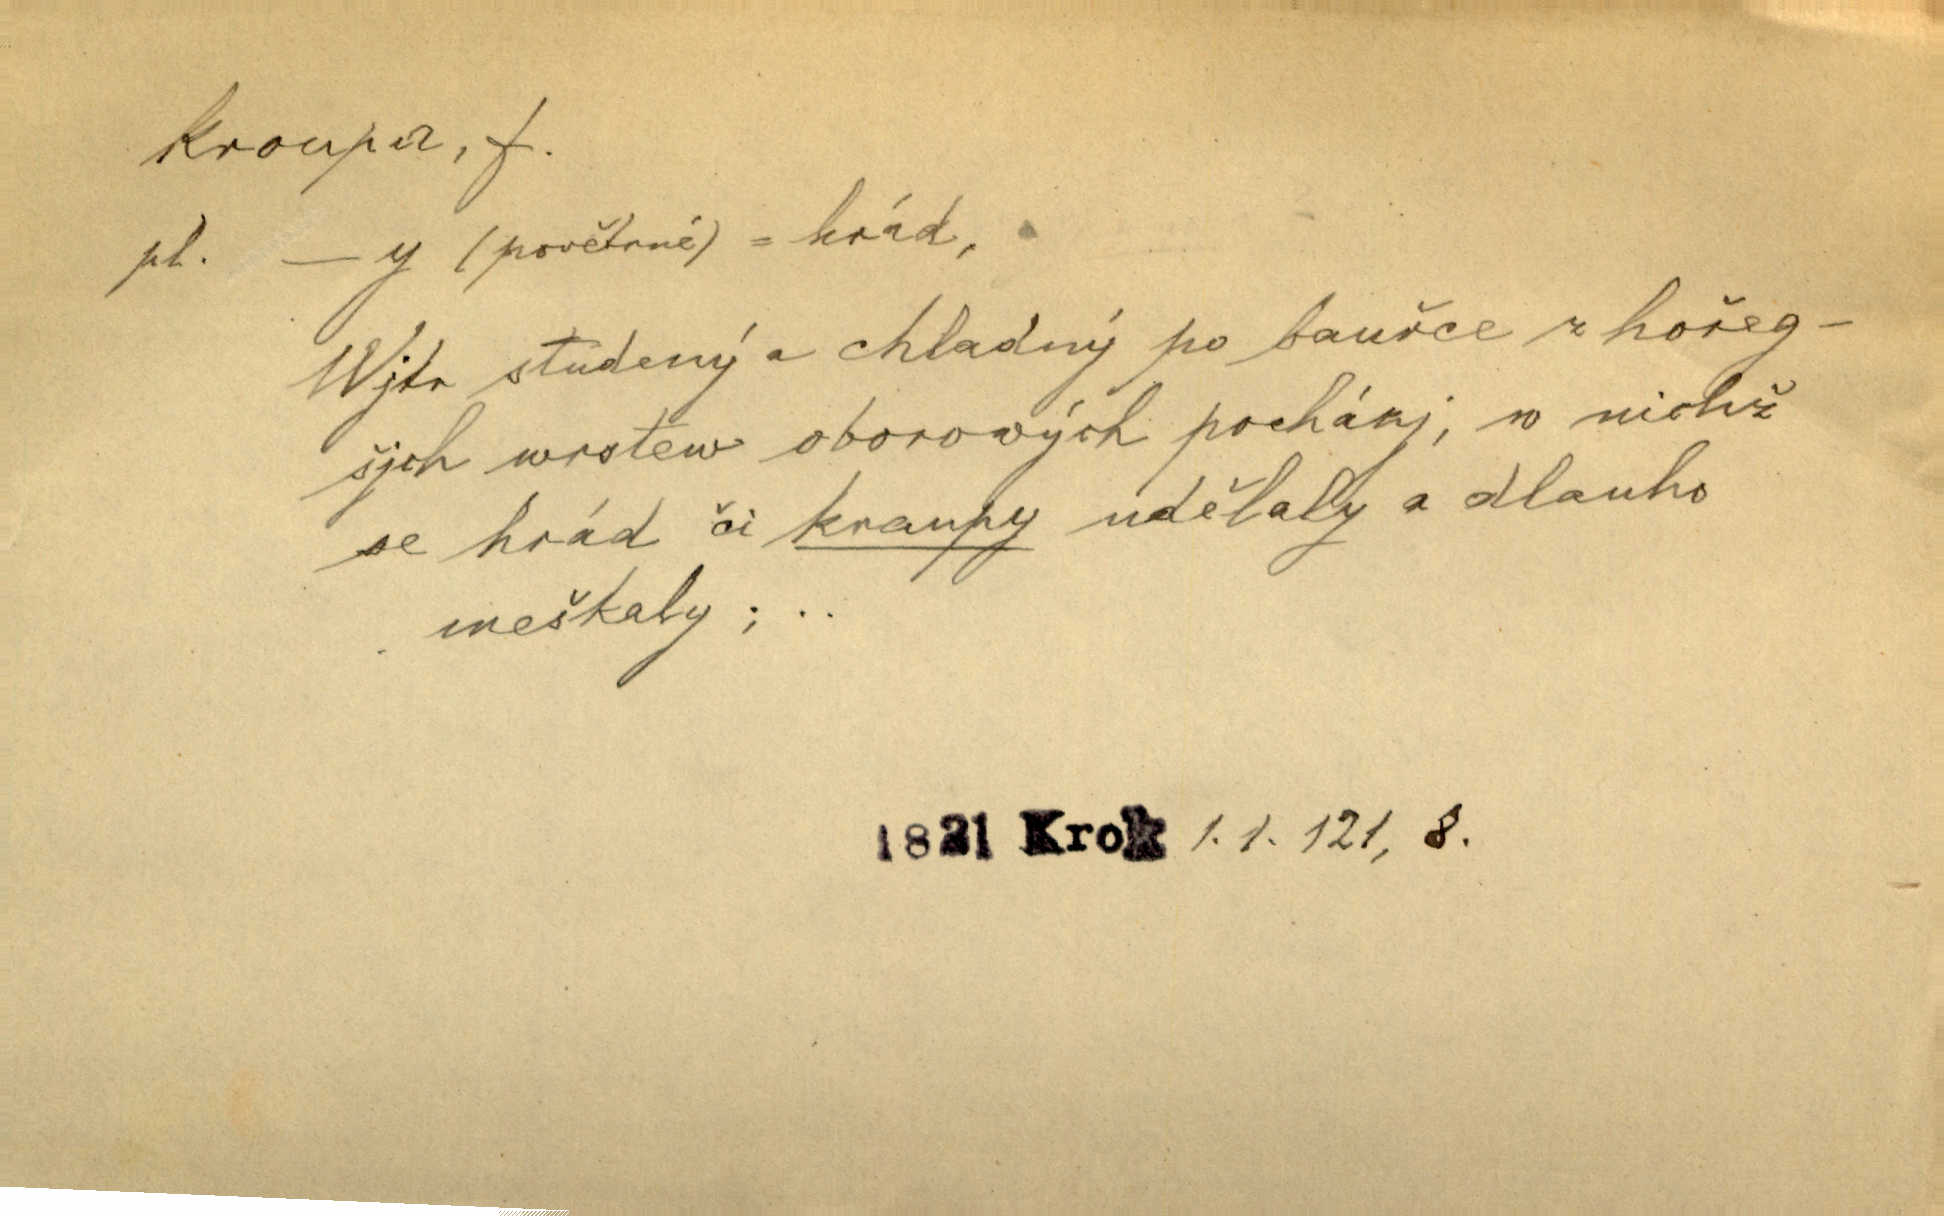 kroupa, f.
pl. — y (povětrné) = hrád,
Wjtr studený a chladný po bauřce z hořeg-
šjch wrstew oborowých pocházj, w nichž
se hrád či kraupy udělaly a dlauho
meškaly; ..
1821 Krok 1.1. 121, 8.